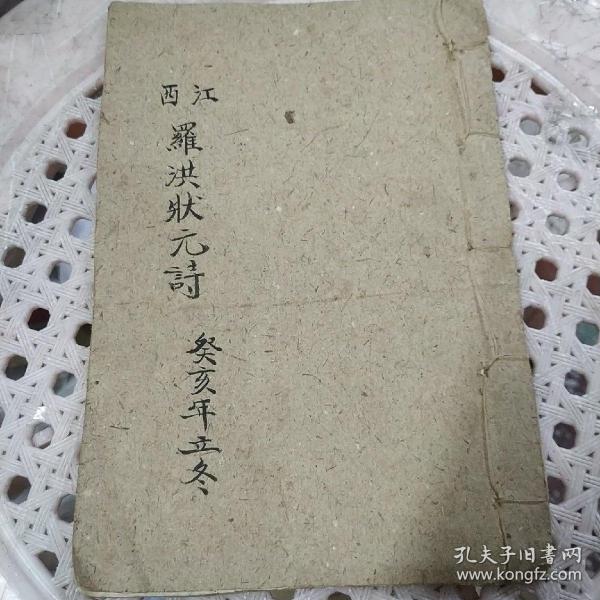 江西
羅洪狀元詩
癸亥年立冬
孔夫子旧書网
www.kongfz.com